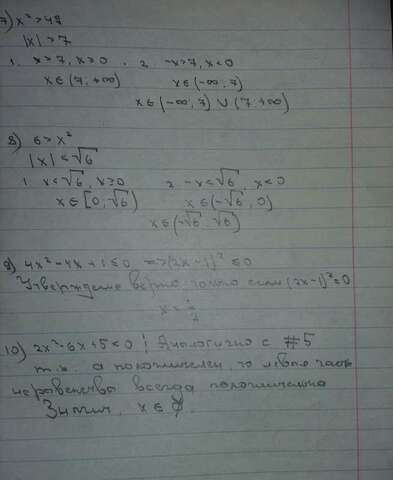 7) x² > 49
|x| > 7
1. x > 7, x > 0 . 2. -x > 7, x < 0
x ∈ (7; +∞) x ∈ (-∞, 7)
x ∈ (-∞, 7) ∪ (7; +∞)
8) 6 > x²
|x| < √6
1 x < √6, x ≥ 0 2 -x < √6, x < 0
x ∈ [0, √6) x ∈ (-√6, 0)
x ∈ (-√6, √6)
9) 4x² - 4x + 1 ≤ 0 => (2x - 1)² ≤ 0
Утверждение верно только если (2x - 1)² = 0
x =
10) 2x² - 6x + 5 < 0 ! Аналогично с #5
т.к. a положителен, то левая часть
неравенства всегда положительна
x ∈ ∅.